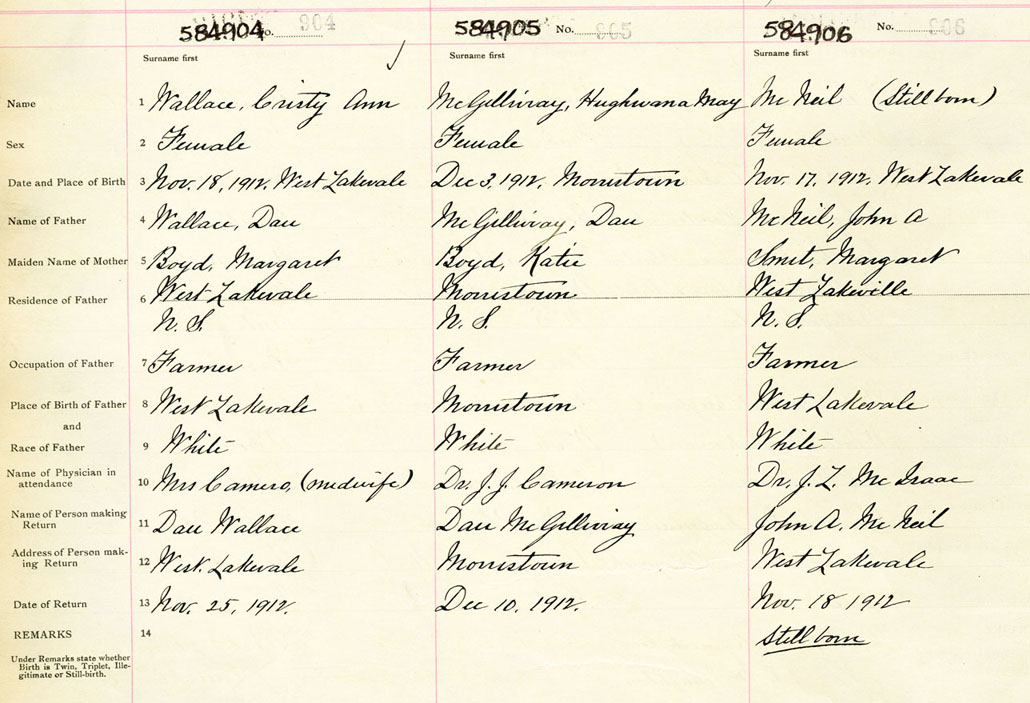 584904 No. 904 584905 No. 905 584906 No. 906
Surname first Surname first Surname first
Name 1 Wallace, Cristy Ann McGillivray, Hughwana May McNeil (Stillborn)
Sex 2 Female Female Female
Date and Place of Birth 3 Nov. 18, 1912, West Lakevale Dec 3, 1912, Morristown Nov. 17, 1912, West Lakevale
Name of Father 4 Wallace, Dan McGillivray, Dan McNeil, John A
Maiden Name of Mother 5 Boyd, Margaret Boyd, Katie Smit, Margaret
Residence of Father 6 West Lakevale Morristown West Lakeville
N.S. N.S. N.S.
Occupation of Father 7 Farmer Farmer Farmer
Place of Birth of Father 8 West Lakevale Morristown West Lakevale
and
Race of Father 9 White White White
Name of Physician in
attendance 10 Mrs Camero, (midwife) Dr. J. J. Cameron Dr. J. L. McIsaac
Name of Person making
Return 11 Dan Wallace Dan McGillivray John A. McNeil
Address of Person mak-
ing Return 12 West Lakevale Morristown West Lakevale
Date of Return 13 Nov. 25, 1912. Dec 10, 1912. Nov. 18 1912
REMARKS 14 Stillborn
Under Remarks state whether
Birth is Twin, Triplet, Ille-
gitimate or Still-birth.